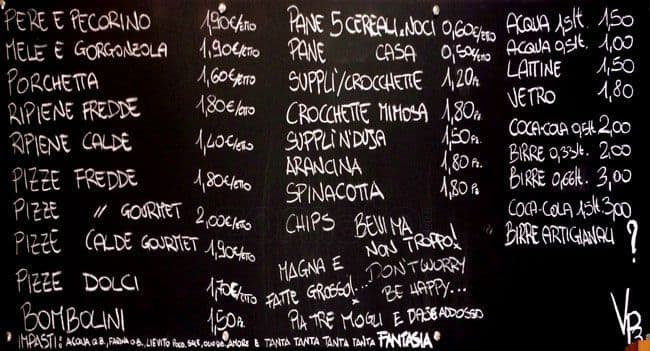 PERE E PECORINO 1,90€/ETTO
MELE E GORGONZOLA 1,90€/ETTO
PORCHETTA 1,60€/ETTO
RIPIENE FREDDE 1,80€/ETTO
RIPIENE CALDE 1,40€/ETTO
PIZZE FREDDE 1,80€/ETTO
PIZZE " GOURMET 2,00€/ETTO
PIZZE CALDE GOURMET 1,90€/ETTO
PIZZE DOLCI 1,70€/ETTO
BOMBOLINI 1,50Pz.
PANE 5 CEREALI E NOCI 0,60€/ETTO
PANE CASA 0,50€/ETTO
SUPPLI'/CROCCHETTE 1,20Pz.
CROCCHETTE MIMOSA 1,80Pz.
SUPPLI N'DUJA 1,50Pz.
ARANCINA 1,80Pz.
SPINACOTTA 1,80Pz
CHIPS
BEVI MA
NON TROPPO!
MAGNA E
FATTE GROSSO!...
DON'T WORRY
BE HAPPY...
PIA TRE MOGLI E DAJE ADDOSSO
ACQUA 1,5lt. 1,50
ACQUA 0,5lt. 1,00
LATTINE 1,50
VETRO 1,80
COCA-COLA 0,5lt. 2,00
BIRRE 0,33lt. 2,00
BIRRE 0,66lt. 3,00
COCA-COLA 1,5lt. 3,00
BIRRE ARTIGIANALI ?
IMPASTI: ACQUA Q.B., FARINA Q.B., LIEVITO POCO, SALE, OLIO Q.B., AMORE E TANTA TANTA TANTA TANTA TANTA FANTASIA